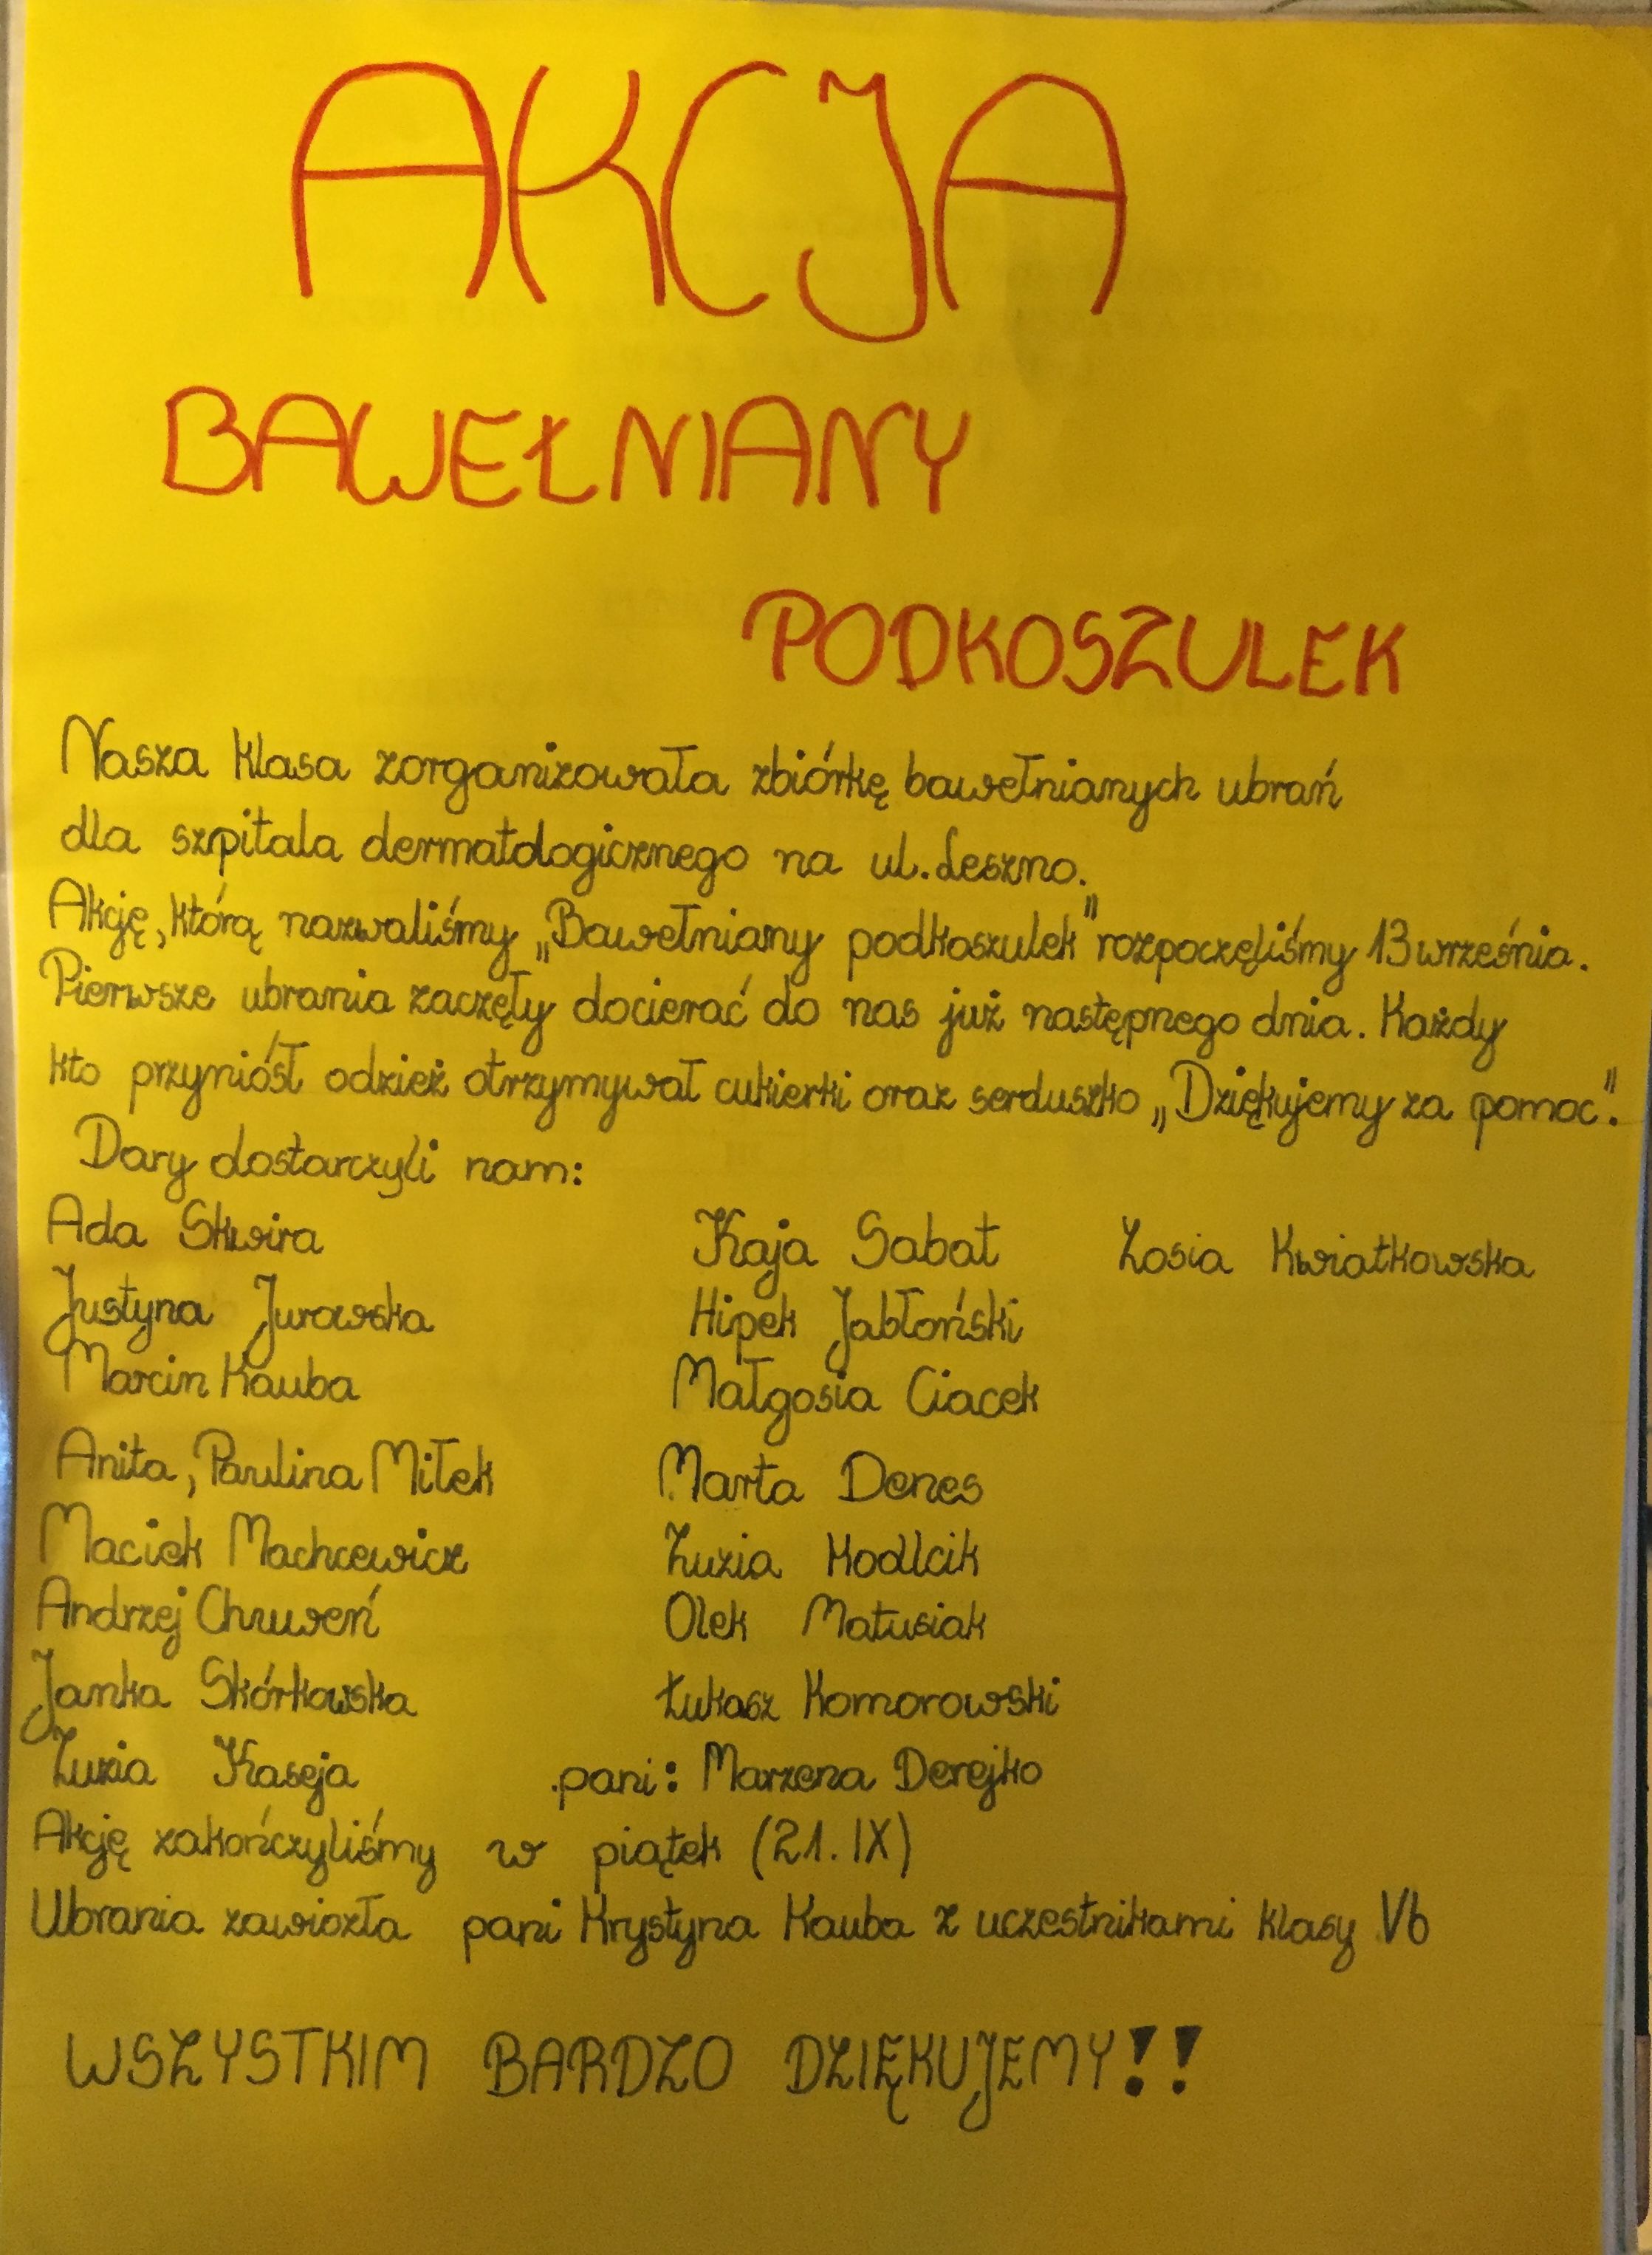 AKCJA
BAWEŁNIANY
PODKOSZULEK
Nasza klasa zorganizowała zbiórkę bawełnianych ubrań
dla szpitala dermatologicznego na ul. Leszno.
Akcję, którą nazwaliśmy „Bawełniany podkoszulek" rozpoczęliśmy 13 września.
Pierwsze ubrania zaczęły docierać do nas już następnego dnia. Każdy
kto przyniósł odzież otrzymywał cukierki oraz serduszko „Dziękujemy za pomoc".
Dary dostarczyli nam:
Ada Skwira Kaja Sabat Zosia Kwiatkowska
Justyna Jurowska Hipek Jabłoński
Marcin Kauba Małgosia Ciacek
Anita, Paulina Miłek Marta Denes
Maciek Machcewicz Zuzia Kodlcik
Andrzej Olek Matusiak
Janka Skórkowska Łukasz Komorowski
Zuzia Kaseja pani: Marzena Derejko
Akcję zakończyliśmy w piątek (21. IX)
Ubrania zawiozła pani Krystyna Kauba z uczestnikami klasy Vb
WSZYSTKIM BARDZO DZIĘKUJEMY!!